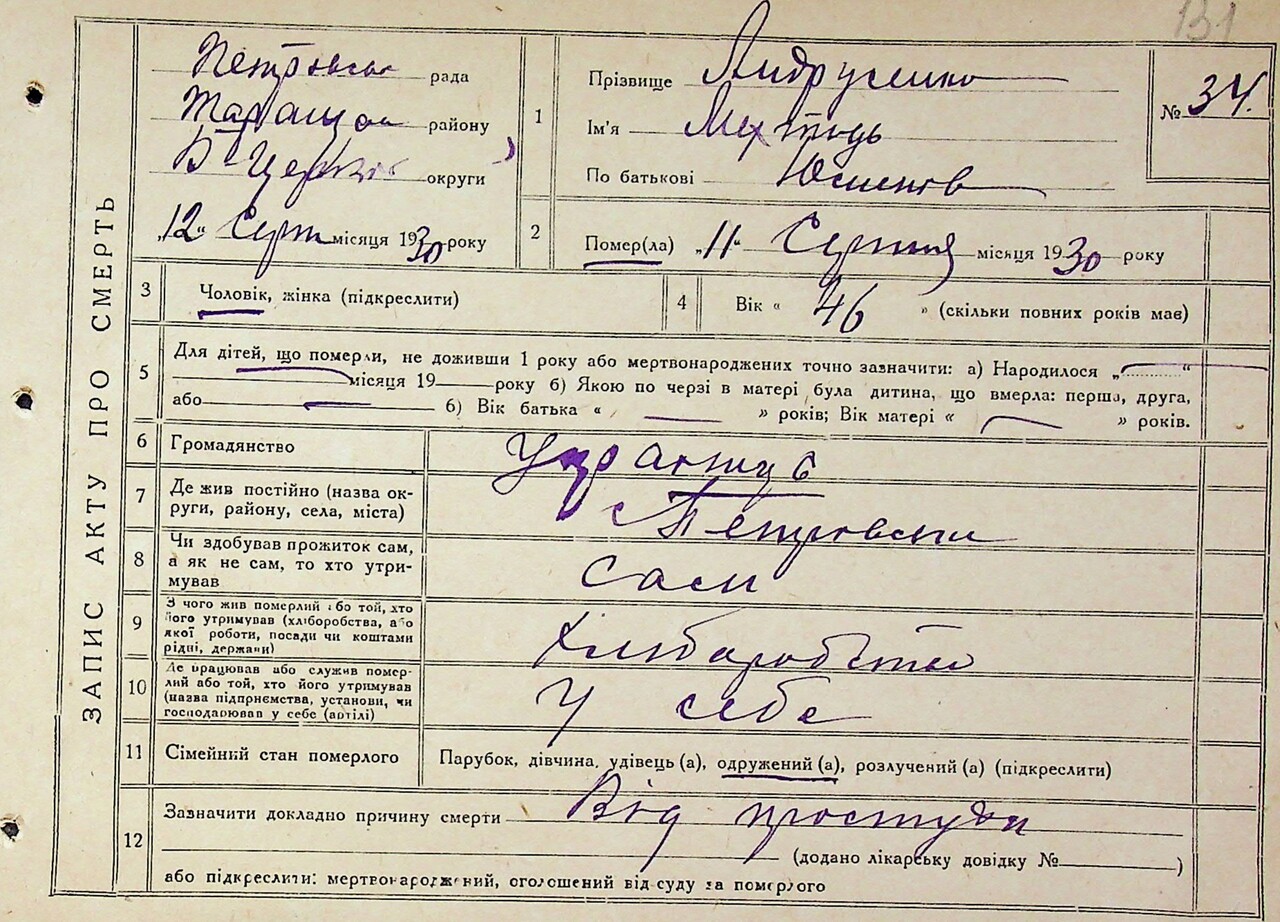 131
ЗАПИС АКТУ ПРО СМЕРТЬ
Петровська рада
Таращан району
Б-Церков округи
„12“ Серп місяця 1930 року
1
Прізвище Андрусенко
Ім'я
По батькові
№ 34.
2
Помер(ла) „11“ Серпня місяця 1930 року
3
Чоловік, жінка (підкреслити)
4
Вік « 46 » (скільки повних років має)
5
Для дітей, що померли, не доживши 1 року або мертвонароджених точно зазначити: а) Народилося „ “
місяця 19 року б) Якою по черзі в матері була дитина, що вмерла: перша, друга,
або б) Вік батька « » років; Вік матері « » років.
6
Громадянство
7
Де жив постійно (назва ок-
руги, району, села, міста)
с Петровськ
8
Чи здобував прожиток сам,
а як не сам, то хто утри-
мував
сам
9
З чого жив померлий або той, хто
його утримував (хліборобства, або
якої роботи, посади чи коштами
рідні, держави)
Хліборобство
10
Де працював або служив помер-
лий або той, хто його утримував
(назва підприємства, установи, чи
господарював у себе (артілі)
У себе
11
Сімейний стан померлого
Парубок, дівчина, удівець (а), одружений (а), розлучений (а) (підкреслити)
12
Зазначити докладно причину смерти Від простуди
(додано лікарську довідку № )
або підкреслити: мертвонароджений, оголошений від суду за померлого